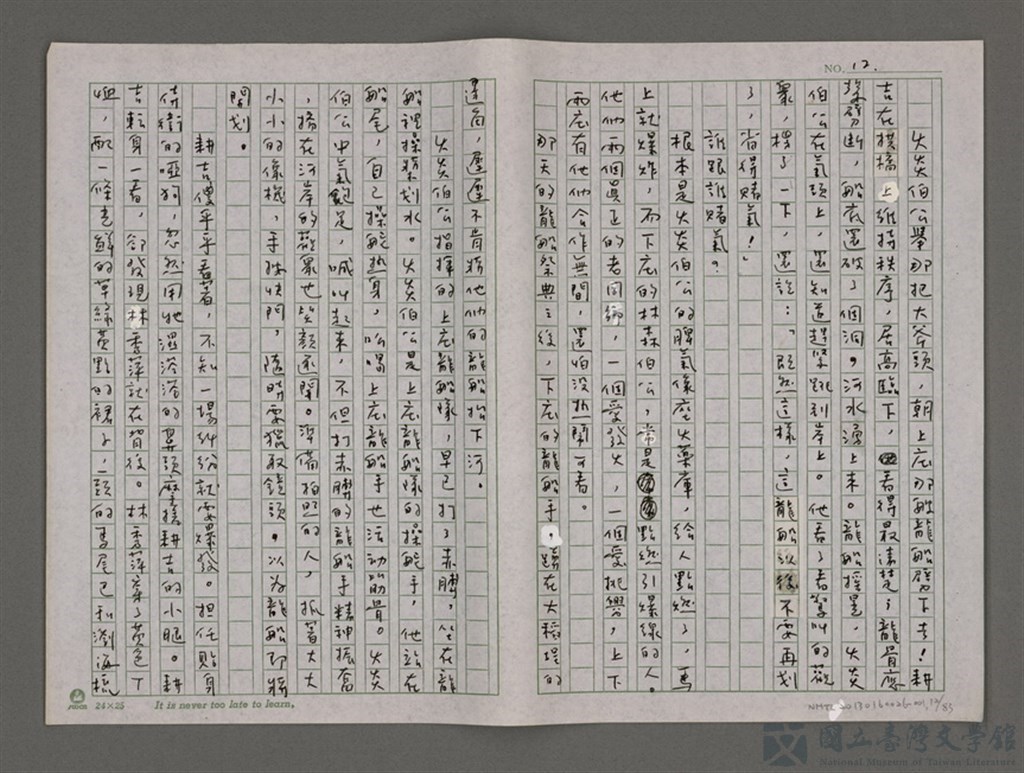 NO. 12.
火炎伯公舉那把大斧頭,朝上庄那艘龍船劈下去!耕
吉在拱橋上維持秩序,居高臨下,看得最清楚;龍骨應
聲劈斷,船底還破了個洞,河水湧上來。龍船搖晃,火炎
伯公在氣頭上,還知道趕緊跳到岸上。他看了看驚叫的觀
眾,楞了一下,還說:「既然這樣,這龍船以後不要再划
了,省得賭氣!」
誰跟誰賭氣?
根本是火炎伯公的脾氣像座火藥庫,給人點燃了,馬
上就爆炸,而下庄的林森伯公,常是點燃引爆線的人。
他們兩個真正的老同鄉,一個愛發火,一個愛挑釁,上下
兩庄有他們合作無間,還怕沒熱鬧可看。
那天的龍船祭典之後,下庄的龍船手,蹲在大稻埕的
這商,遲遲不肯將他們的龍船抬下河。
火炎伯公指揮的上庄龍船隊,早已打了赤膊,坐在龍
船裡操槳划水。火炎伯公是上庄龍船隊的操舵手,他站在
船尾,自己操舵熱身,吆喝上庄龍船手也活動筋骨。火炎
伯公中氣飽足,喊叫起來,不但打赤膊的龍船手精神振奮
,擠在河岸的觀眾也皆顏逐開。準備拍照的人,抓著大大
小小的像機,手按快門,隨時要獵取鏡頭。以為龍船即將
開划。
耕吉傻乎乎看著,不知一場糾紛就要爆發。擔任貼身
侍衛的啞狗,忽然用牠濕答答的鼻頭摩搓耕吉的小腿。耕
吉轉身一看,卻發現林秀萍就在背後。林秀萍穿了黃色T
恤,配一條老鮮的草綠黃點的裙子,一頭的馬尾巴和瀏海梳
24×25
It is never too late to learn.
NMTL20130160026-001,12/83
國立臺灣文學館
National Museum of Taiwan Literature